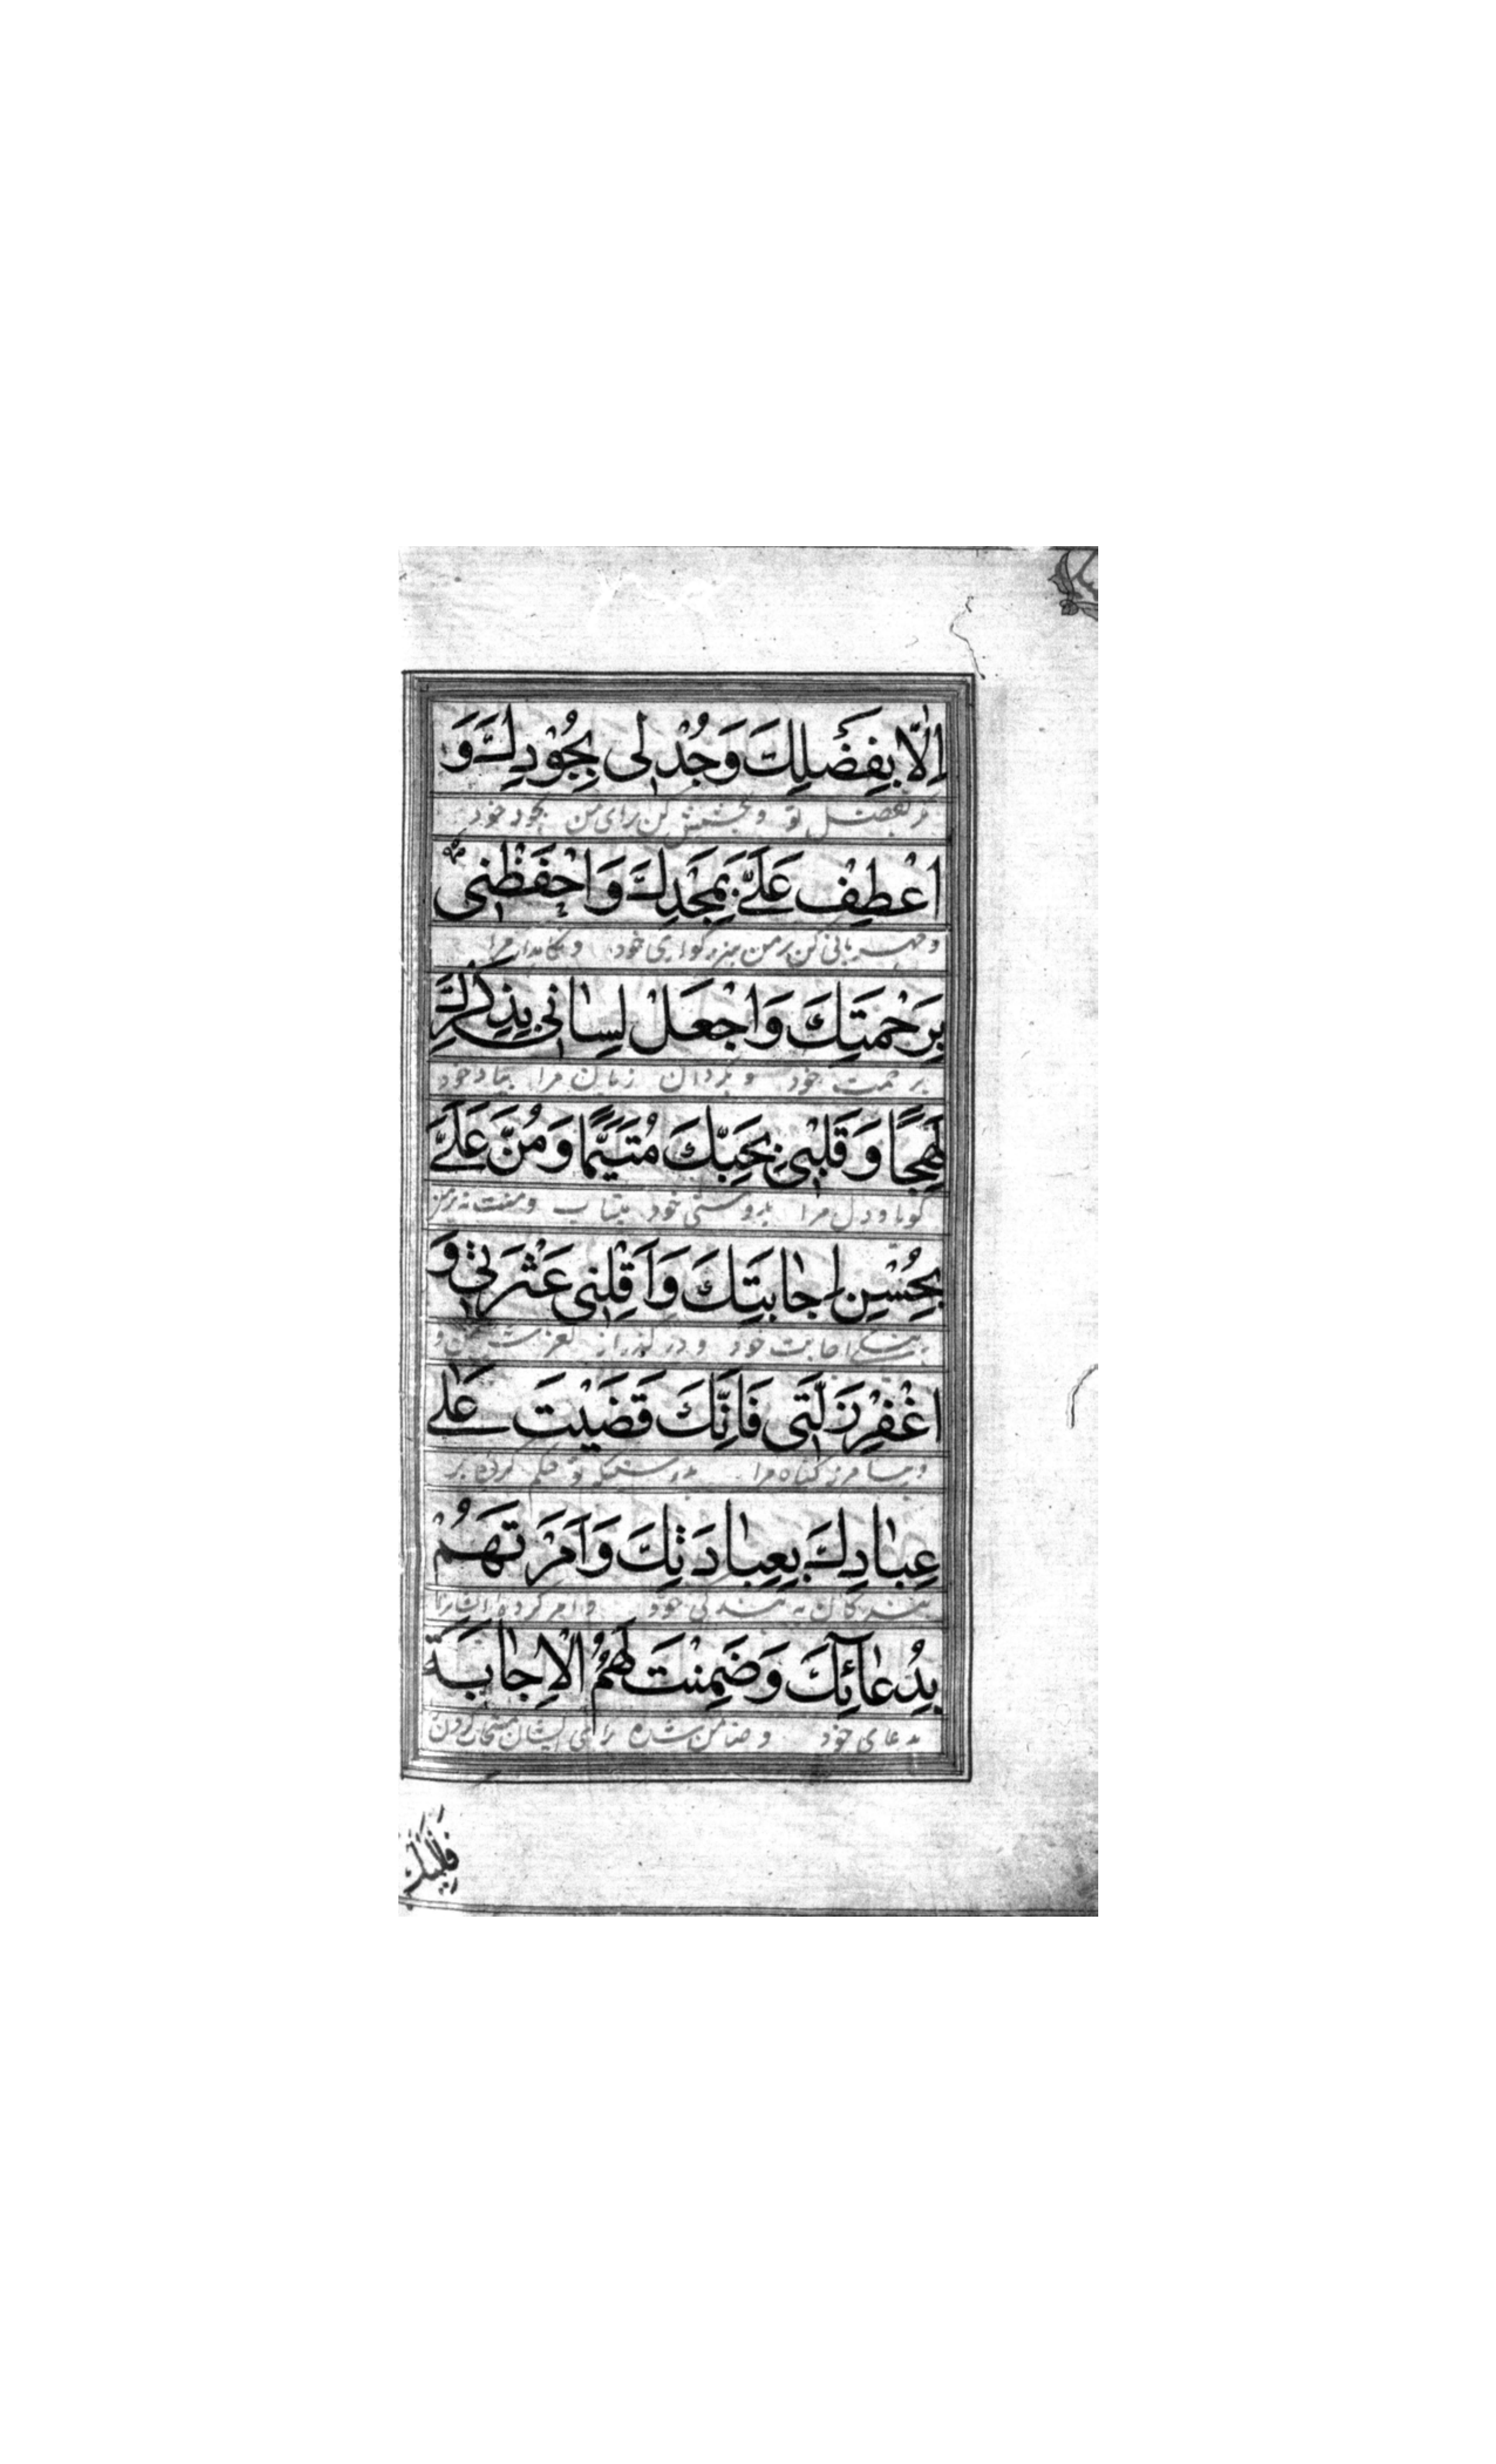 اِلّٰا بِفَضْلِكَ وَجُدْ لِي بِجُوْدِكَ وَ
مگر بفضل تو و بخشش کن برای من بجود خود
اعْطِفْ عَلَيَّ بِمَجْدِكَ وَاحْفَظْنِي
و مهربانی کن بر من ببزرگواری خود و نگاهدار مرا
بِرَحْمَتِكَ وَاجْعَلْ لِسٰانِي بِذِكْرِكَ
برحمت خود و بگردان زبان مرا بیاد خود
لَهِجًا وَقَلْبِيْ بِحُبِّكَ مُتَيَّمًا وَمُنَّ عَلَيَّ
گویا و دل مرا بدوستی خود بیتاب و منت نه بر من
بِحُسْنِ اِجٰابَتِكَ وَاَقِلْنِي عَثْرَتِي وَ
اجابت خود و در گذر از لغزش من و
اغْفِرْ زَلَّتِي فَاِنَّكَ قَضَيْتَ عَلٰى
و بیامرز گناه مرا بدرستیکه تو حکم کرده بر
عِبٰادِكَ بِعِبٰادَتِكَ وَاَمَرْتَهُمْ
بندگان به بندگی خود و امر کرده ایشانرا
بِدُعٰائِكَ وَضَمِنْتَ لَهُمُ الْاِجٰابَةَ
بدعای خود و ضامن شده برای ایشان مستجاب کردن
فَاِلَيْكَ